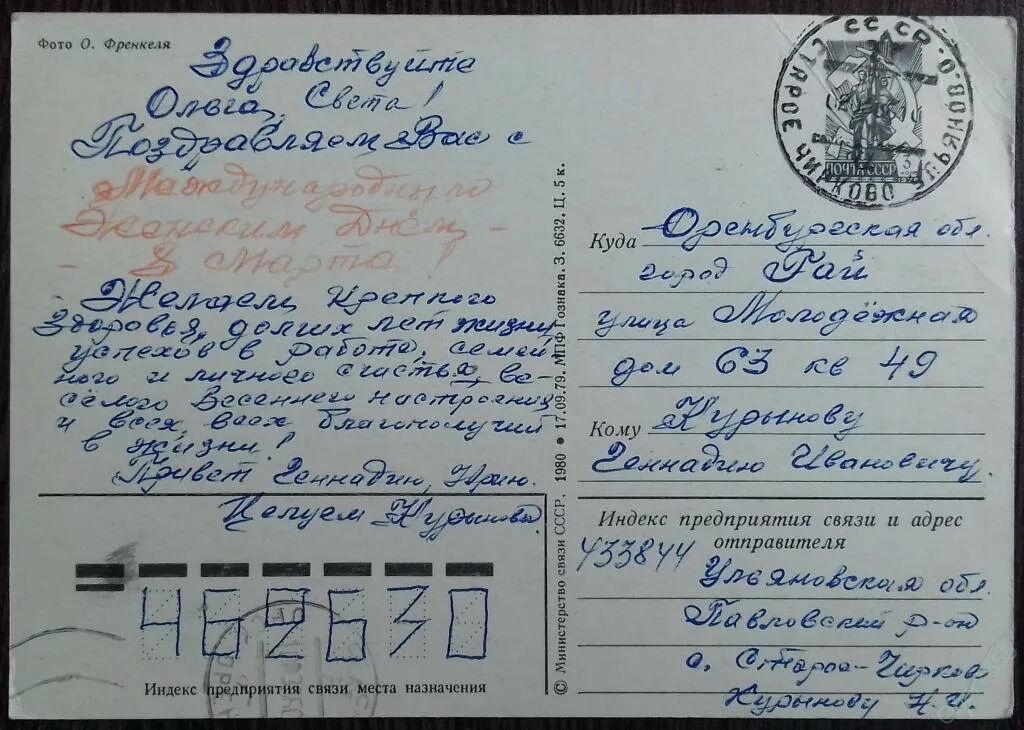 Фото О. Френкеля
Здравствуйте
Ольга, Света!
Поздравляем Вас с
Международным
Женским Днём, -
- 8 Марта!
Желаем крепкого
здоровья, долгих лет жизни,
успехов в работе, семей
ного и личного счастья, ве-
селого весеннего настроения
и всех, всех благополучий
в жизни!
Привет Геннадию, Юрию.
Целуем Курыновы
46 26 30
Индекс предприятия связи места назначения
© Министерство связи СССР, 1980 • 17.09.79. МПФ Гознака. З. 6632. Ц. 5 к.
СССР
СТАРОЕ ЧИРКОВО
ПОЧТА СССР
3
Куда Оренбургская обл.
город Гай
улица Молодёжная
дом 63 кв 49
Кому Курынову
Геннадию Ивановичу.
Индекс предприятия связи и адрес
отправителя
433844
Ульяновская обл.
Павловский р-он
с. Старое-Чирково
Курынову Н.И.